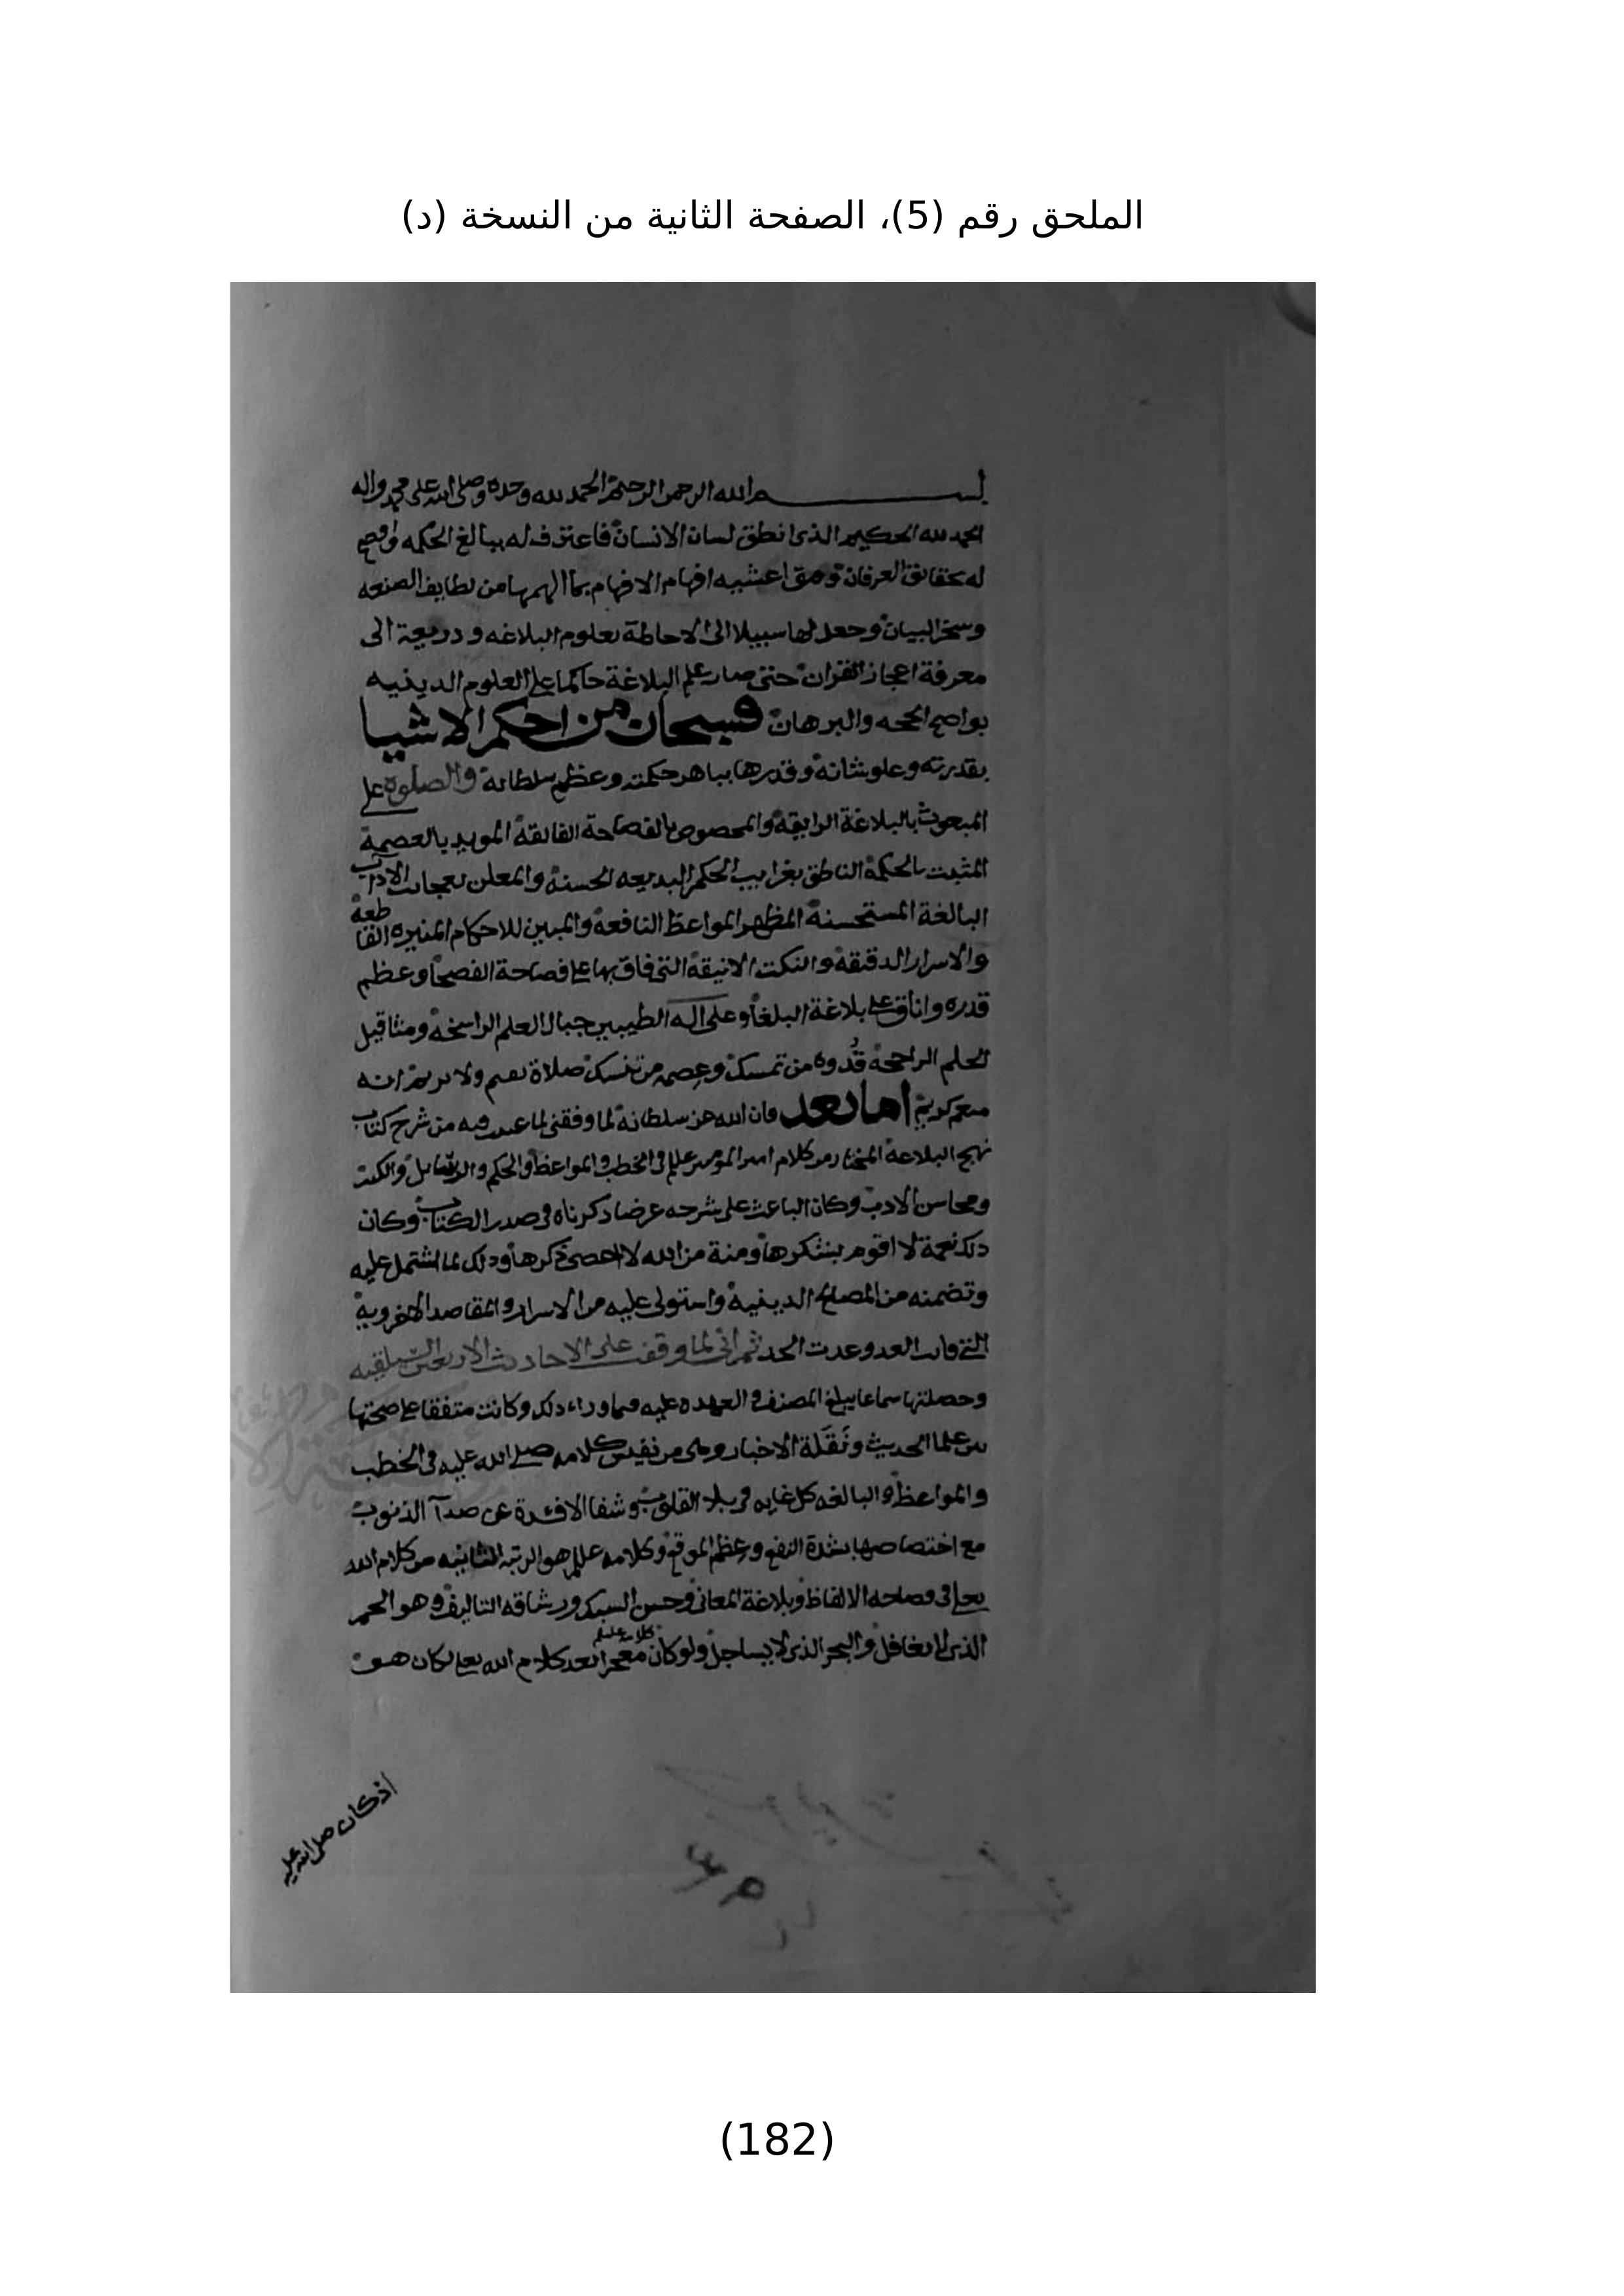 الملحق رقم (5)، الصفحة الثانية من النسخة (د)
بسم الله الرحمن الرحيم الحمد لله وحده وصلى الله على محمد واله
الحمد لله الحكيم الذى انطق لسان الانسان فاعترف له ببالغ الحكمه واوضح
له حقائق العرفان اغشيه افهام الافهام بما الهمها من لطايف الصنعه
وسخر البيان وجعل لها سبيلا الى الاحاطة بعلوم البلاغه وذريعة الى
معرفة اعجاز القران حتى صار علم البلاغة حاكما على العلوم الدينيه
بواضح الحجه والبرهان فسبحان من احكم الاشيا
بقدرته وعلو شانه وقدرها بباهر حكمته وعظم سلطانه والصلوة على
المبعوث بالبلاغة الرايقة والمخصوص بالفصاحة الفائقة المويد بالعصمة
المثبت بالحكمة الناطق بغرايب الحكم البديعه الحسنة والمعلن بعجائب الاداب
البالغة المستحسنة المظهر المواعظ النافعة والمبين للاحكام المنيره القاطعة
والاسرار الدقيقة والنكت الانيقة التى فاق بها على فصاحة الفصحا وعظم
قدره واناف على بلاغة البلغا وعلى اله الطيبين جبال العلم الراسخة ومثاقيل
الحلم الراجحة قدوه من تمسك وعصمه من تنسك صلاة
اما بعد فان الله عز سلطانه لما وفقنى لما فيه من شرح كتاب
نهج البلاغة المختار من كلام امير المومنين عللم فى الخطب والمواعظ والحكم والرسايل والكتب
ومحاسن الادب وكان الباعث على شرحه عرضا ذكرناه فى صدر الكتاب وكان
ذلك نعمة لا اقوم بشكرها ومنة من الله لا احصى ذكرها وذلك لما اشتمل عليه
وتضمنه من المصالح الدينية واستولى عليه من الاسرار والمقاصد الاخروية
التى فاتت العد وعدت الحد ثم انى لما وقفت على الاحاديث الاربعين السيلقيه
وحصلتها سماعا يبلغ المصنف والعهده عليه فيما وراء ذلك وكانت متفقا على صحتها
بين علما الحديث ونَقَلَة الاخبار وهى من نفيس كلامه صلى الله عليه فى الخطب
والمواعظ والبالغه كل غايه فى جلا القلوب وشفا الافئدة عن صدآ الذنوب
مع اختصاصها بشدة النفع وعظم الموقع وكلامه عللم هو الرتبه الثانيه من كلام الله
تعالى فى فصاحه الالفاظ وبلاغة المعانى وحسن السبك ورشاقه التاليف وهو
الذى لا والبحر الذى لا يساجل ولو كان كلام معجزا بعد كلام الله تعالى لكان هو
اذ كان صلى الله عليه
(182)